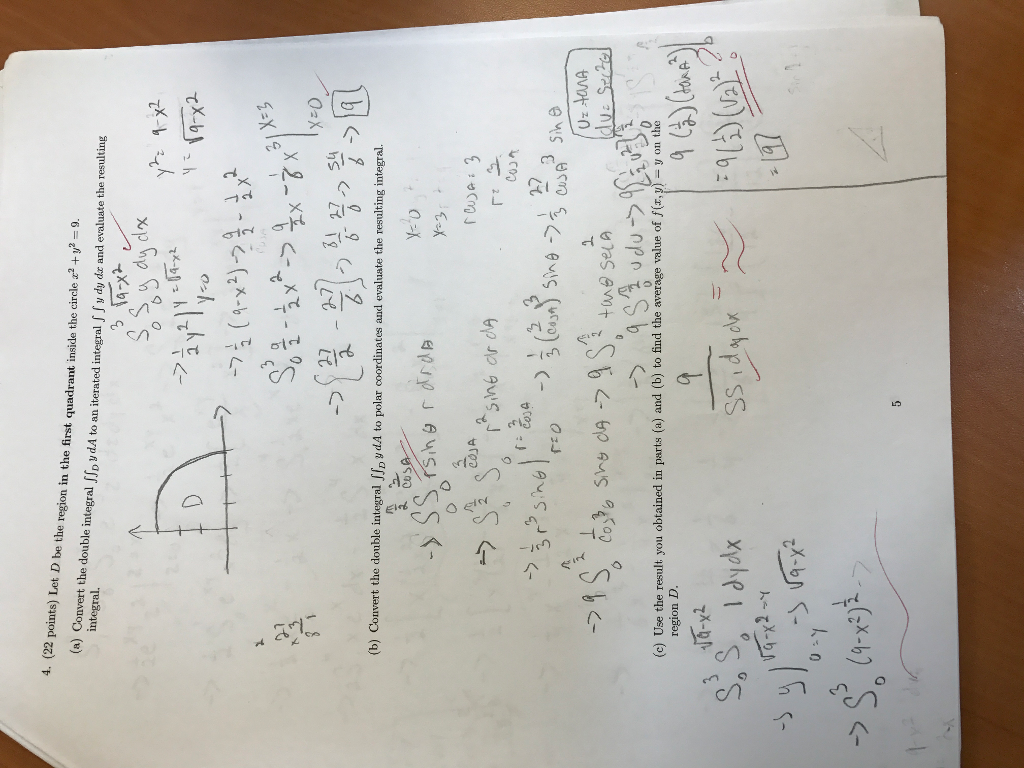 4. (22 points) Let D be the region in the first quadrant inside the circle x² + y² = 9.
(a) Convert the double integral ∫∫_D y dA to an iterated integral ∫∫ y dy dx and evaluate the resulting
integral.
S₀³ S₀^√(9-x²) y dy dx
y² = 9-x²
y = √(9-x²)
D
→ ½y² | y=√(9-x²) y=0
→ ½(9-x²) → 9/2 - ½x²
S₀³ 9/2 - ½x² → 9/2x - 1/6x³ | x=3 x=0
→ 27/2 - 27/6 → 81/6 - 27/6 → 54/6 → 9
27
x 3
81
(b) Convert the double integral ∫∫_D y dA to polar coordinates and evaluate the resulting integral.
x=0
x=3
rcosθ=3
r = 3/cosθ
→ S₀^π/2 S₀^3/cosθ rsinθ r dr dθ
→ S₀^π/2 S₀^3/cosθ r² sinθ dr dθ
→ ⅓r³ sinθ | r=3/cosθ r=0 → ⅓(3/cosθ)³ sinθ → ⅓ 27/cosθ³ sinθ
→ 9 S₀^π/2 1/cos³θ sinθ dθ → 9 S₀^π/2 tanθ sec²θ
u = tanθ
du = sec²θ
→ 9 S₀^π/2 u du → 9
9(½)(tanθ²)
= 9(½)(√2)² ?
= 9
(c) Use the result you obtained in parts (a) and (b) to find the average value of f(x, y) = y on the
region D.
S₀³ S₀^√(9-x²) 1 dy dx
9 / SS 1 dy dx =
→ y | √(9-x²)=y 0=y → √(9-x²)
→ S₀³ (9-x²)^½ →
5